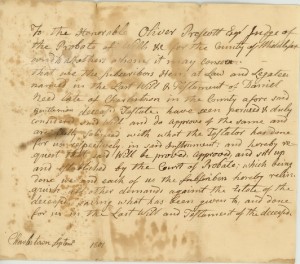 To the Honorable Oliver Prescott Esqr Judge of
the Probate of Wills &c for the County of Middlesex
and to all others whom it may concern
that we the subscribers Heirs at Law and Legatees
named in the Last Will & Testament of Daniel
Reed late of Charlestown in the County afore said
gentleman deceasd Testate have seen perused & duly
considered said Will and do approve of the same and
are fully satisfied with what the Testator has done
for us respectively in said Instrument and hereby re
quest that said Will be proved, approved, and set up
and established by the Court of Probate which being
done we and each of us the subscribers hereby relin
quish all other demands against the Estate of the
deceased saving what has been given to and done
for us in the Last Will and Testament of the deceased.
Charlestown 1801